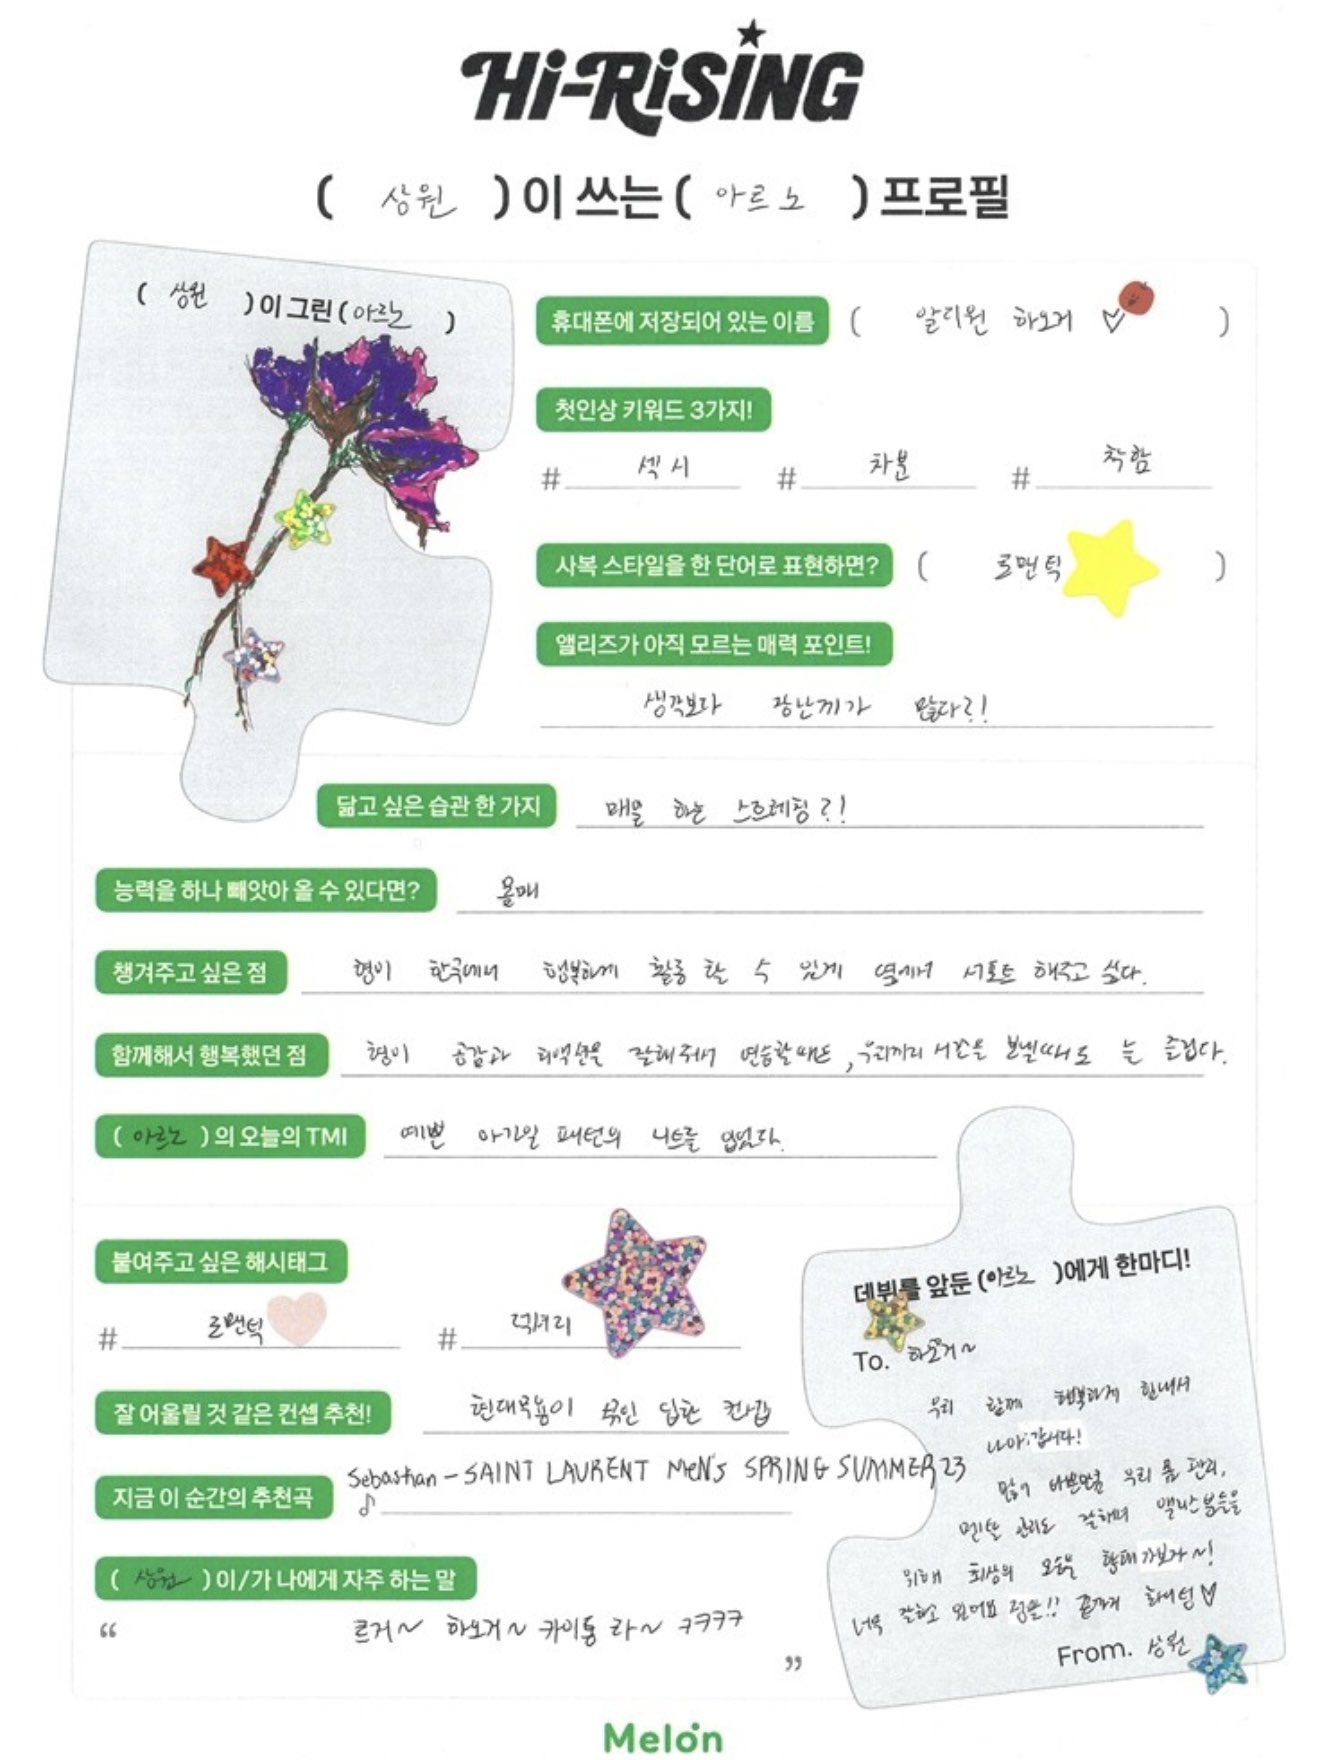 Hi-RiSING
( 상원 ) 이 쓰는 ( 아르노 ) 프로필
( 상원 ) 이 그린 ( 아르노 )
휴대폰에 저장되어 있는 이름 ( 알디원 하오거 ♡ )
첫인상 키워드 3가지!
# 섹시 # 차분 # 착함
사복 스타일을 한 단어로 표현하면? ( 로맨틱 )
앨리즈가 아직 모르는 매력 포인트!
생각보다 장난끼가 많다?!
닮고 싶은 습관 한 가지 매일 하는 스트레칭?!
능력을 하나 빼앗아 올 수 있다면? 몸매
챙겨주고 싶은 점 형이 한국에서 행복하게 활동 할 수 있게 옆에서 서포트 해주고 싶다.
함께해서 행복했던 점 형이 공감과 리액션을 잘해줘서 연습할때도, 우리끼리 시간을 보낼때도 늘 즐겁다.
( 아르노 ) 의 오늘의 TMI 예쁜 아가일 패턴의 니트를 입었다.
붙여주고 싶은 해시태그
# 로맨틱 # 럭셔리
잘 어울릴 것 같은 컨셉 추천! 현대무용이 섞인 딥한 컨셉
지금 이 순간의 추천곡 ♪ Sebastian - SAINT LAURENT MEN'S SPRING SUMMER 23
( 상원 ) 이/가 나에게 자주 하는 말
“ 르거~ 하오거~ 카이통 라~ ㅋㅋㅋㅋ ”
데뷔를 앞둔 ( 아르노 )에게 한마디!
To. 하오거~
우리 함께 행복하게 힘내서
나아갑시다!
많이 바쁜만큼 우리 몸 관리,
멘탈 관리도 잘하며 앨리즈분들을
위해 최상의 모습을 향해 가보자~!
너무 잘하고 있어요 정말!! 끝까지 화이팅♡
From. 상원
Melon